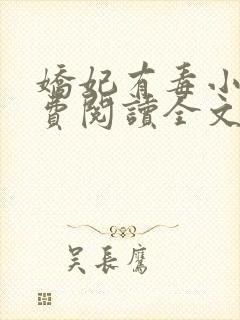 嬌妃有毒小
費閱讀全文
吴長鷹